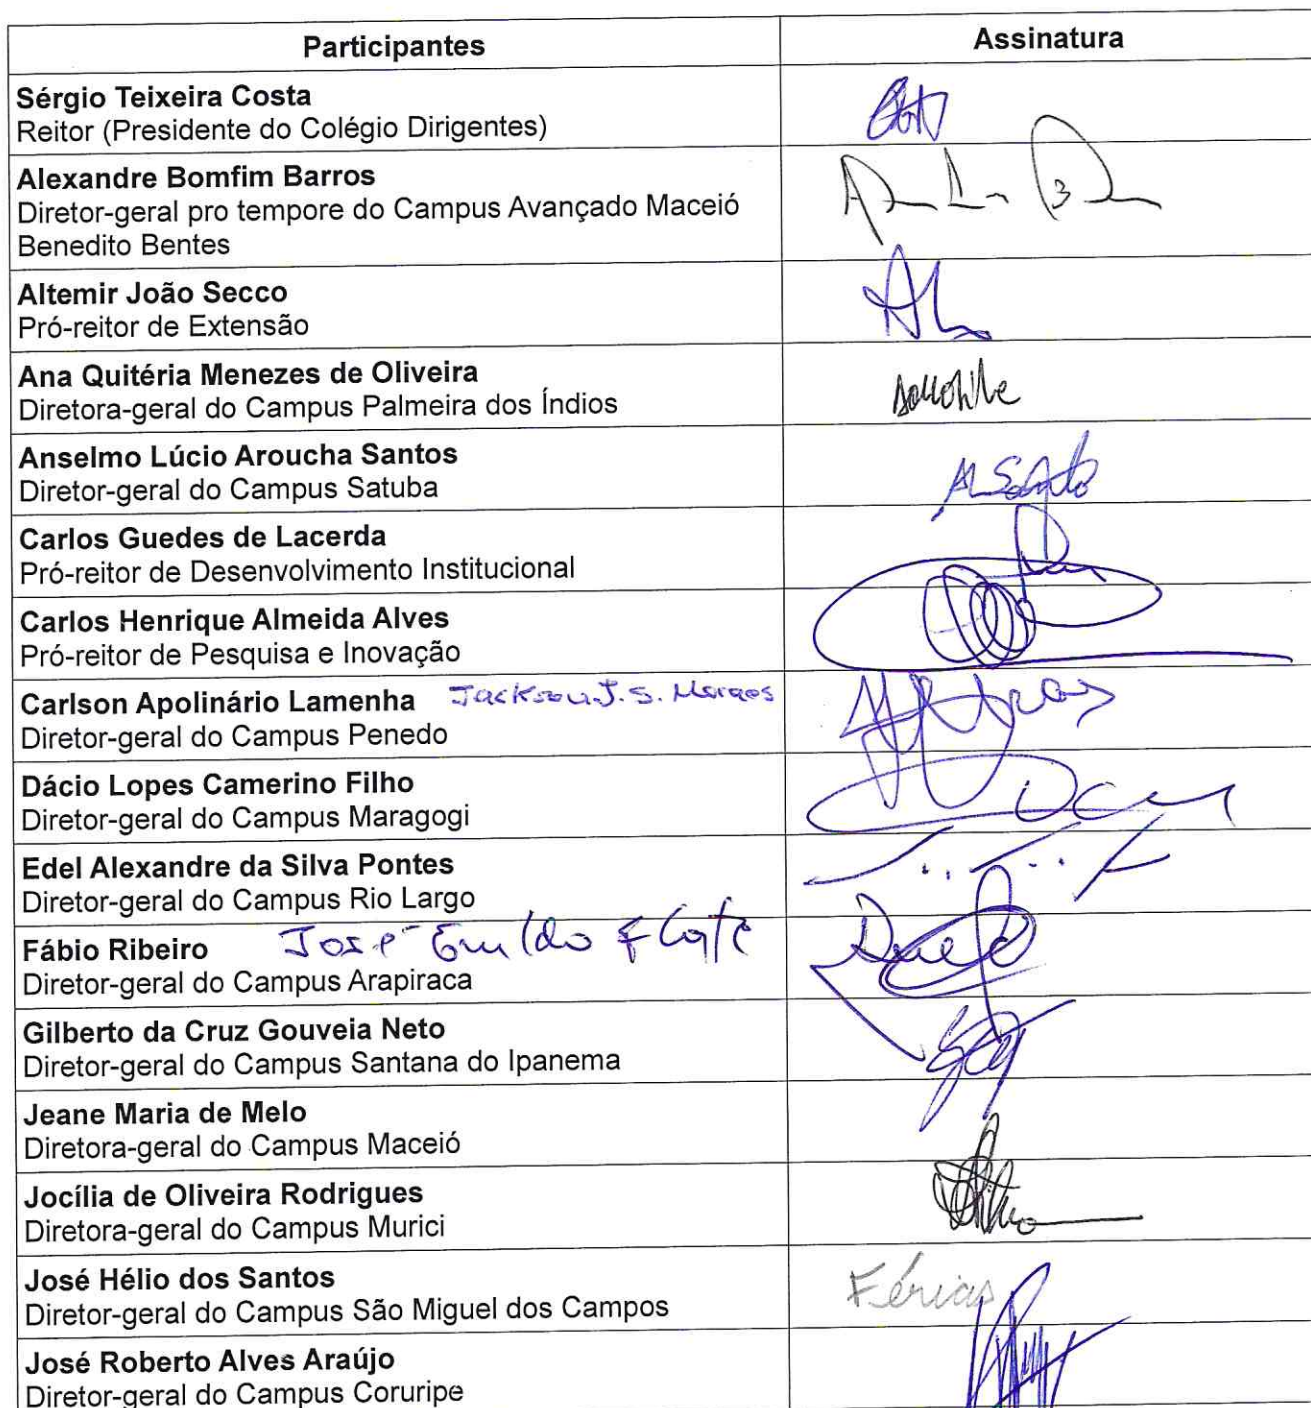 Participantes Assinatura
Sérgio Teixeira Costa
Reitor (Presidente do Colégio Dirigentes)
Alexandre Bomfim Barros
Diretor-geral pro tempore do Campus Avançado Maceió
Benedito Bentes
Altemir João Secco
Pró-reitor de Extensão
Ana Quitéria Menezes de Oliveira
Diretora-geral do Campus Palmeira dos Índios
Anselmo Lúcio Aroucha Santos
Diretor-geral do Campus Satuba
Carlos Guedes de Lacerda
Pró-reitor de Desenvolvimento Institucional
Carlos Henrique Almeida Alves
Pró-reitor de Pesquisa e Inovação
Carlson Apolinário Lamenha Jackson J. S. Moraes
Diretor-geral do Campus Penedo
Dácio Lopes Camerino Filho
Diretor-geral do Campus Maragogi
Edel Alexandre da Silva Pontes
Diretor-geral do Campus Rio Largo
Fábio Ribeiro José
Diretor-geral do Campus Arapiraca
Gilberto da Cruz Gouveia Neto
Diretor-geral do Campus Santana do Ipanema
Jeane Maria de Melo
Diretora-geral do Campus Maceió
Jocília de Oliveira Rodrigues
Diretora-geral do Campus Murici
José Hélio dos Santos Férias
Diretor-geral do Campus São Miguel dos Campos
José Roberto Alves Araújo
Diretor-geral do Campus Coruripe